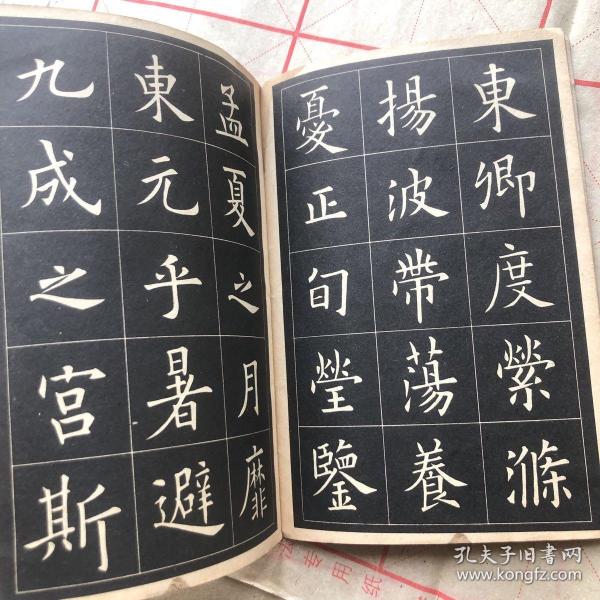 東卿度縈滌
揚波帶蕩養
憂正旬瑩鑒
孟夏之月靡
東元乎暑避
九成之宮斯
专用纸
孔夫子旧书网
www.kongfz.com